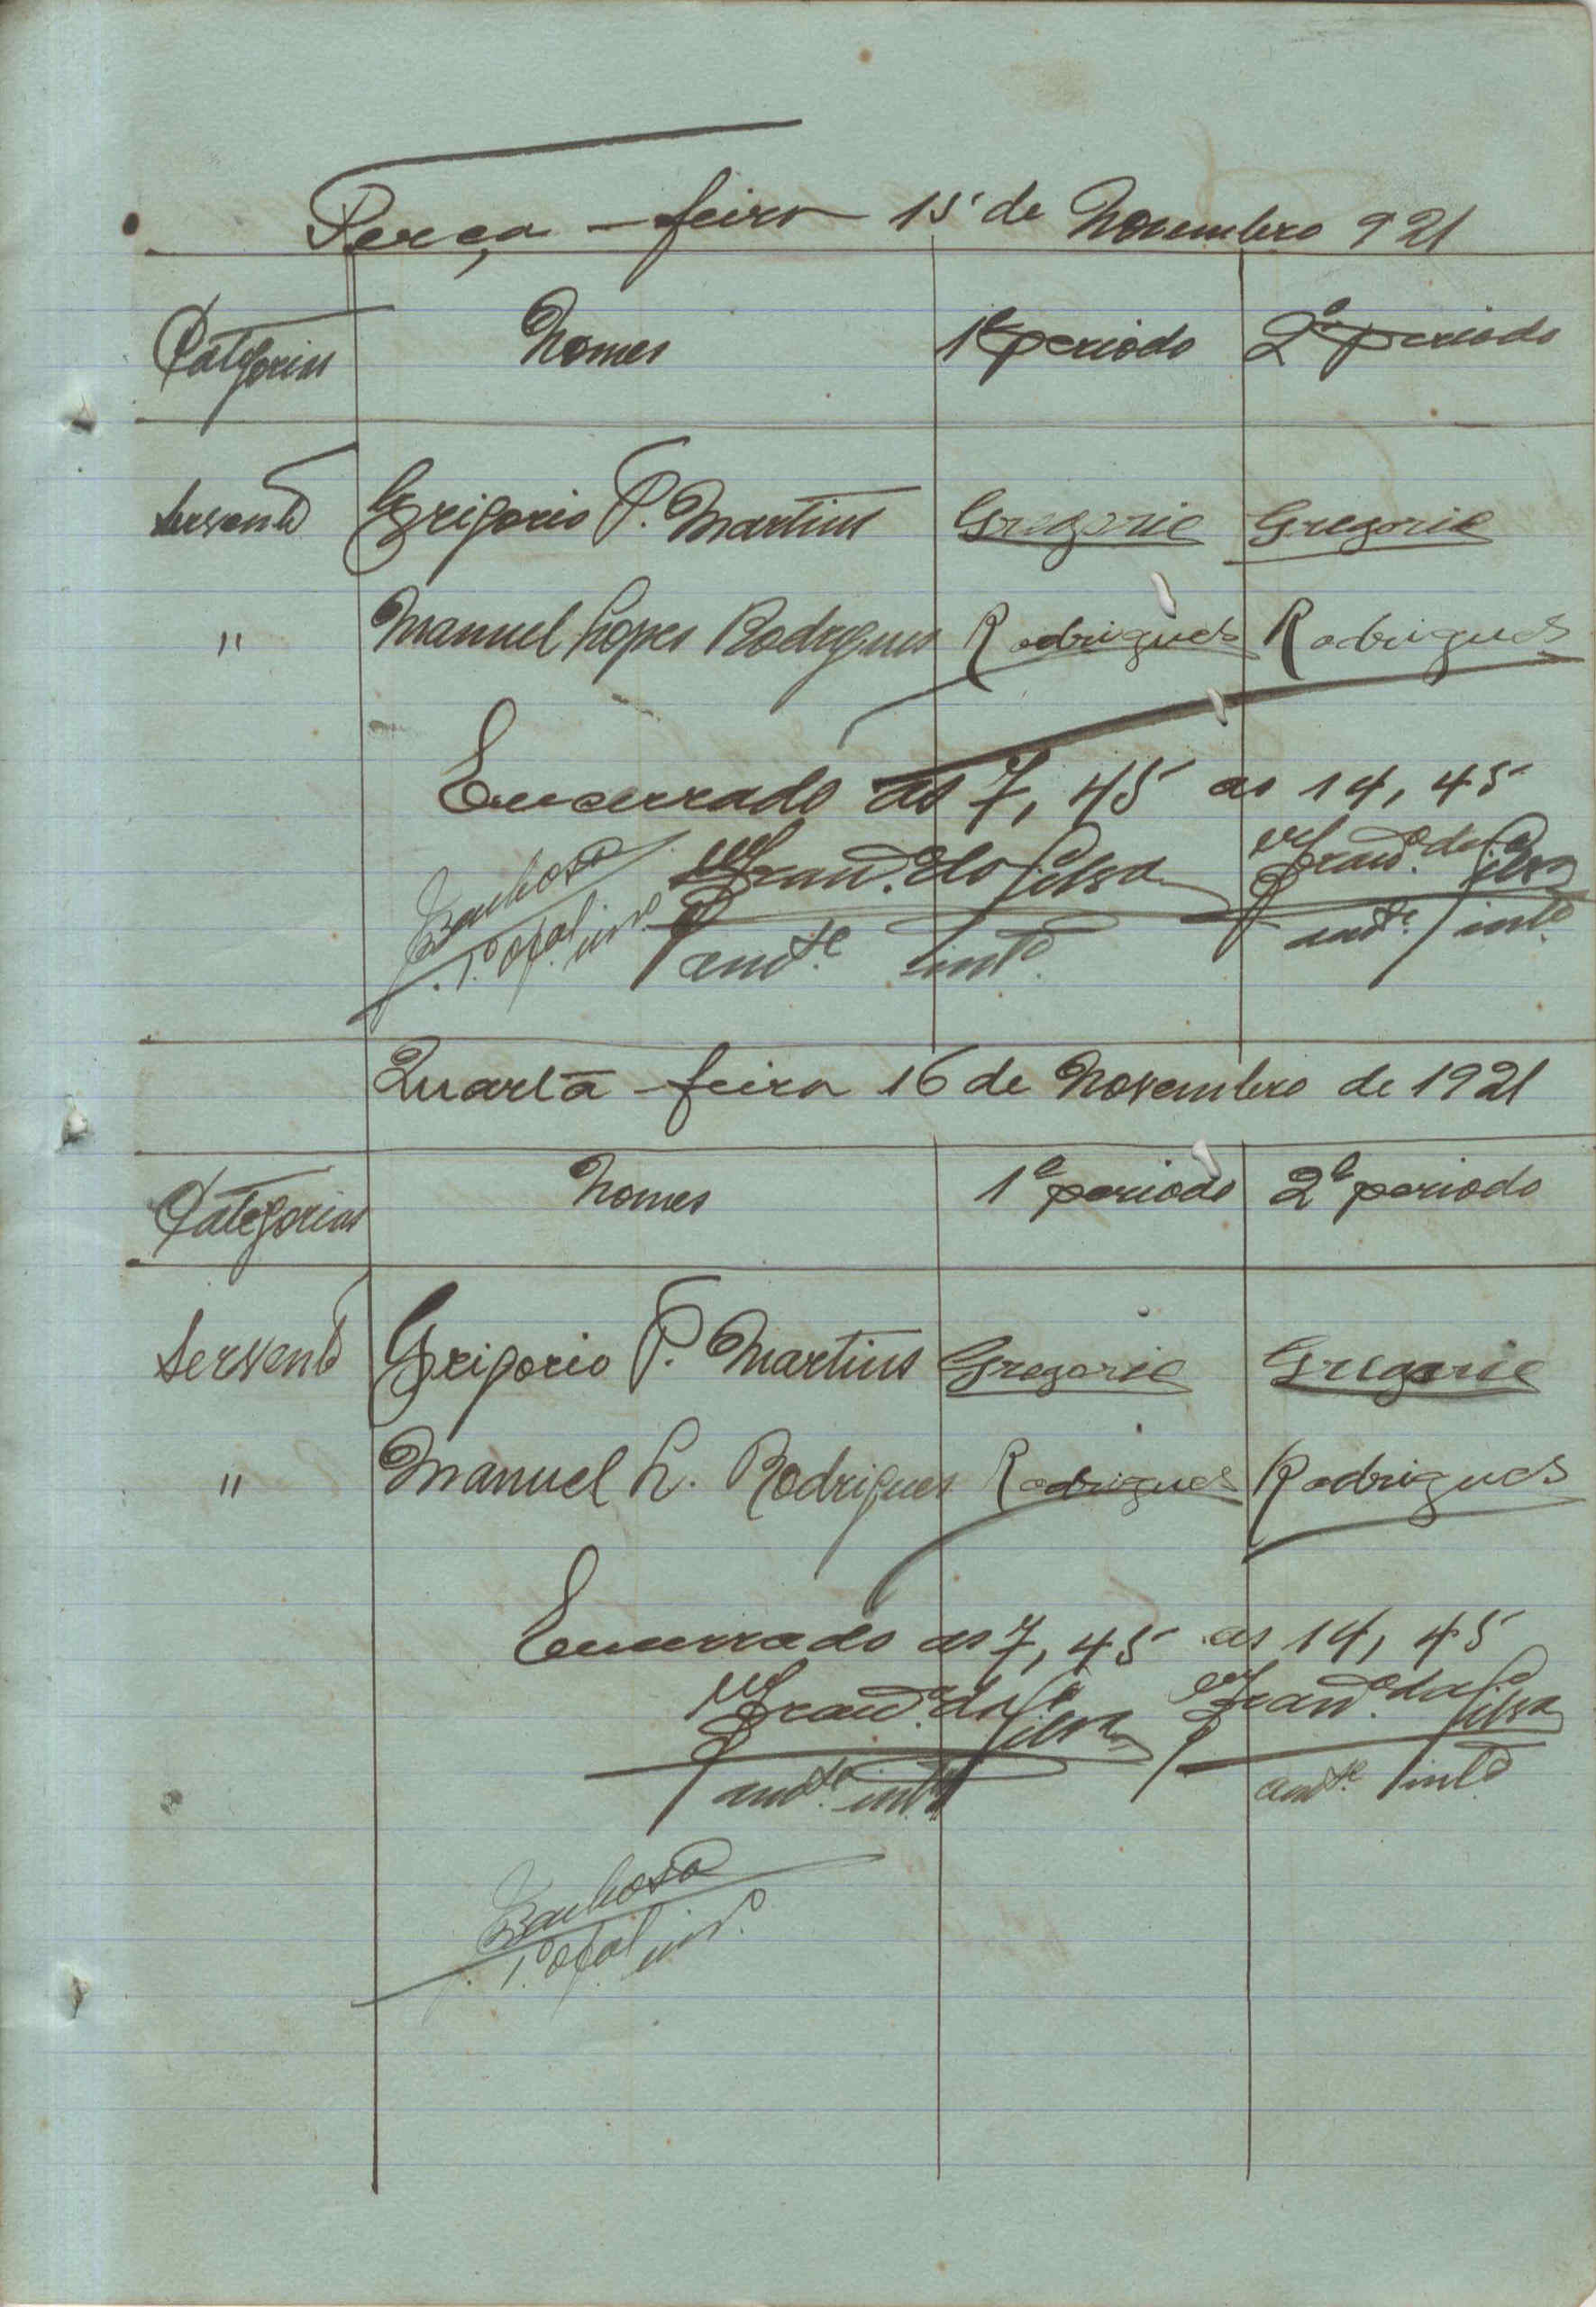 Terça-feira 15 de Novembro 921
Categorias Nomes 1º periodo 2º periodo
Servente Grigorio P. Martins Gregorio Gregorio
" Manuel Lopes Rodrigues Rodrigues Rodrigues
Encerrado as 7,45 as 14,45
Barbosa
1º ofal int.º
Franc.º da Silva Franc.º da Silva
int.º int.º
Quarta-feira 16 de Novembro de 1921
Categorias Nomes 1º periodo 2º periodo
Servente Grigorio P. Martins Gregorio Gregorio
" Manuel L. Rodrigues Rodrigues Rodrigues
Encerrado as 7,45 as 14,45
Franc.º da Silva Franc.º da Silva
int.º int.º
Barbosa
1º ofal int.º